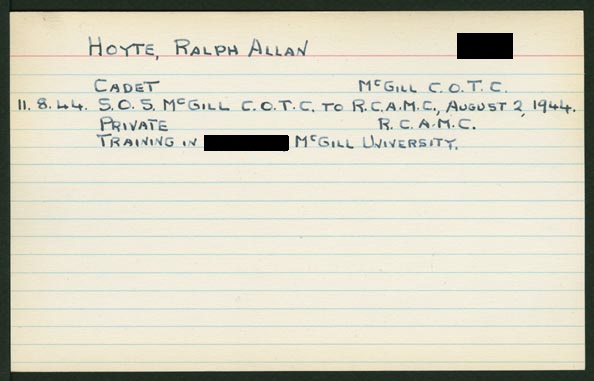 HOYTE, RALPH ALLAN
CADET McGILL C.O.T.C.
11.8.44. S.O.S. McGILL C.O.T.C. TO R.C.A.M.C., AUGUST 2, 1944.
PRIVATE R.C.A.M.C.
TRAINING IN McGILL UNIVERSITY.